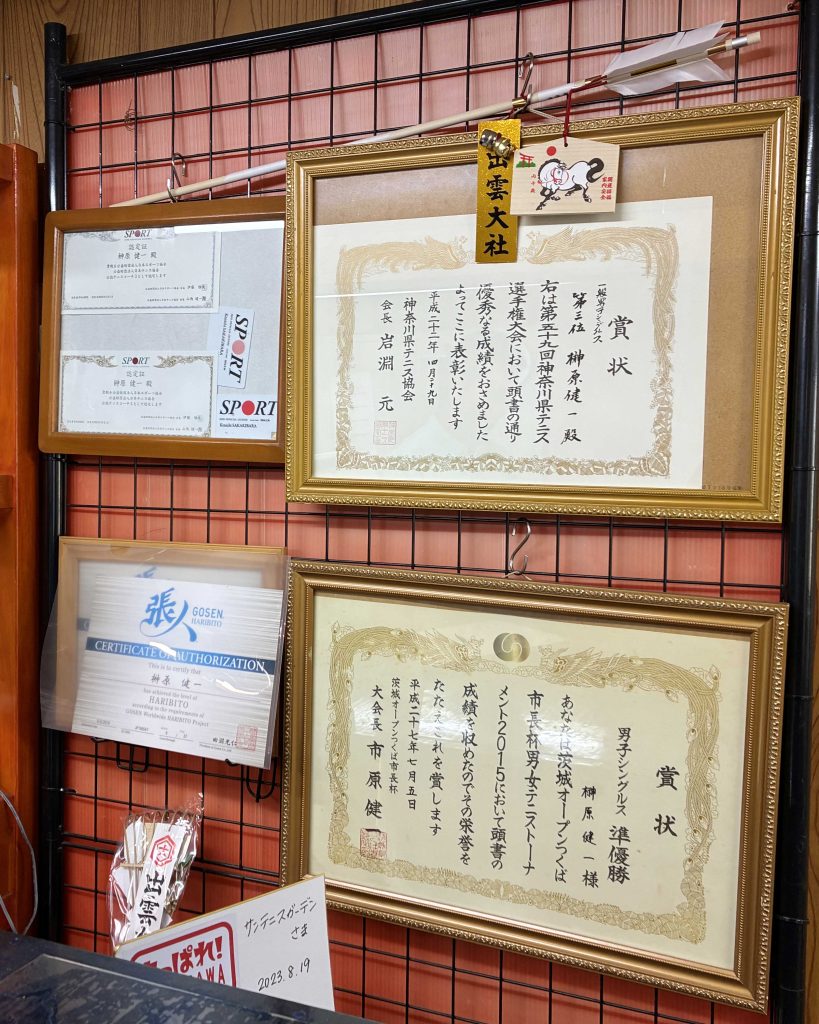 出雲大社
SPORT
認定証
榊原 健一 殿
SPORT
認定証
榊原 健一 殿
SPORT
SPORT
Kenichi SAKAKIBARA
賞状
一般男子シングルス
第三位 榊原健一殿
右は第五十九回神奈川県テニス
選手権大会において頭書の通り
優秀なる成績をおさめました
よってここに表彰いたします
平成二十一年四月二十九日
神奈川県テニス協会
会長 岩淵 元
張人 GOSEN
HARIBITO
CERTIFICATE OF AUTHORIZATION
This is to certify that
榊原 健一
has achieved the level of
HARIBITO
according to the requirements of
GOSEN Worldwide HARIBITO Project
賞状
男子シングルス 準優勝
榊原健一様
あなたは茨城オープンつくば
市長杯男女テニストーナ
メント2015において頭書の
成績を収めたのでその栄誉を
たたえこれを賞します
平成二十七年七月五日
茨城オープンつくば市長杯
大会長 市原健一
出雲
サンテニスガーデン
さま
2023.8.19
っぱれ!
AWA